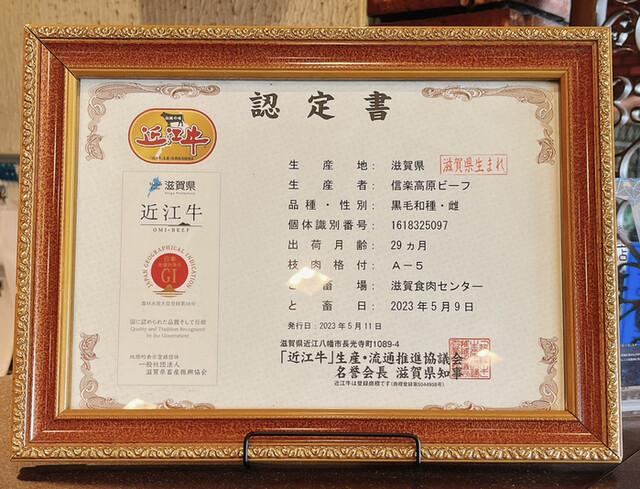 認定書
近江牛
滋賀県
Shiga Prefecture
近江牛
OMI-BEEF
JAPAN GEOGRAPHICAL INDICATION
日本
地理的表示
GI
農林水産大臣登録第56号
国に認められた品質そして伝統
Quality and Tradition Recognized
by the Government
地理的表示登録団体
一般社団法人
滋賀県畜産振興協会
生産地: 滋賀県 滋賀県生まれ
生産者: 信楽高原ビーフ
品種・性別: 黒毛和種・雌
個体識別番号: 1618325097
出荷月齢: 29ヵ月
枝肉格付: A-5
畜場: 滋賀食肉センター
と畜日: 2023年5月9日
発行日:2023年5月11日
滋賀県近江八幡市長光寺町1089-4
「近江牛」生産・流通推進協議会
名誉会長 滋賀県知事
近江牛は登録商標です(商標登録第5044958号)